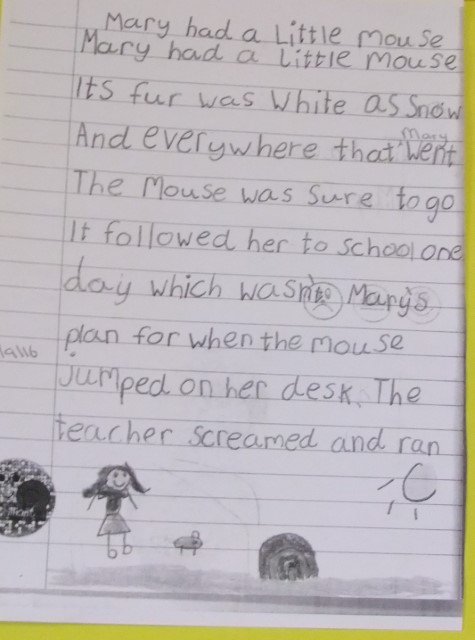 Mary had a Little Mouse
Mary had a Little Mouse
Its fur was White as snow
And everywhere that Mary went
The Mouse was sure to go
It followed her to school one
day which wasn't Mary's
plan for when the mouse
jumped on her desk. The
teacher screamed and ran